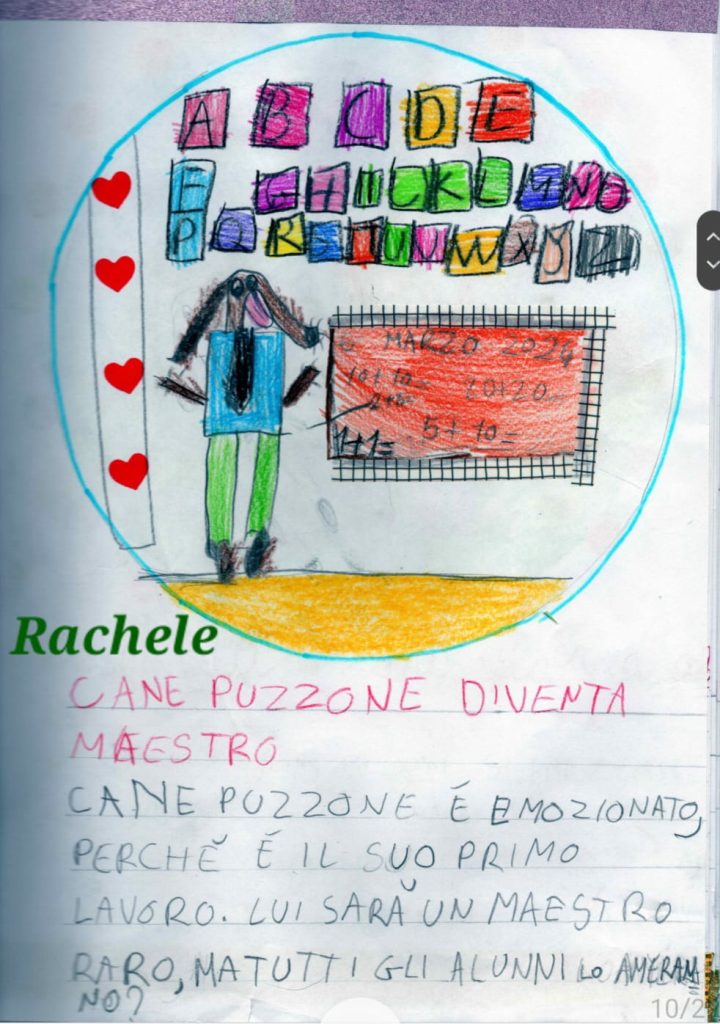 A B C D E
F G H I J K L M N O
P Q R S T U V W X Y Z
6 MARZO 2024
10+10= 20+20=
2+8=
1+1= 5+10=
Rachele
CANE PUZZONE DIVENTA
MAESTRO
CANE PUZZONE É EMOZIONATO,
PERCHÈ É IL SUO PRIMO
LAVORO. LUI SARÀ UN MAESTRO
RARO, MA TUTTI GLI ALUNNI LO AMERAN
NO?
10/2